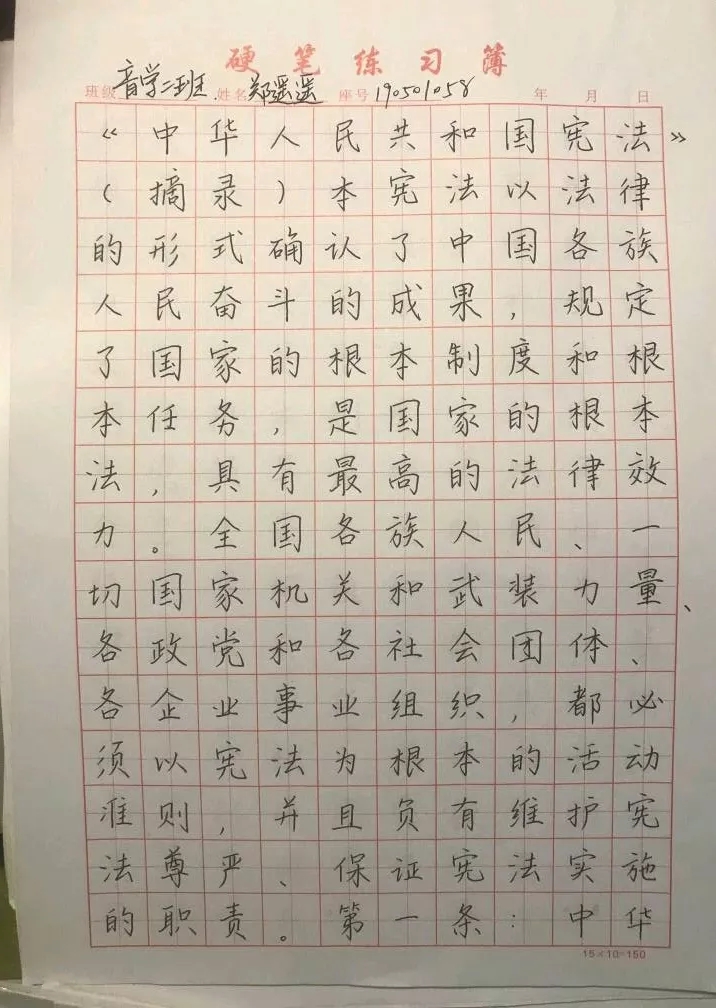 硬笔练习簿
班级 音学二班. 姓名 郑遥遥 座号 190501058 年 月 日
《中华人民共和国宪法》
(摘录)本宪法以法律
的形式确认了中国各族
人民奋斗的成果,规定
了国家的根本制度和根
本任务,是国家的根本
法,具有最高的法律效
力。全国各族人民、一
切国家机关和武装力量、
各政党和各社会团体、
各企业事业组织,都必
须以宪法为根本的活动
准则,并且负有维护宪
法尊严、保证宪法实施
的职责。第一条:中华
15×10=150